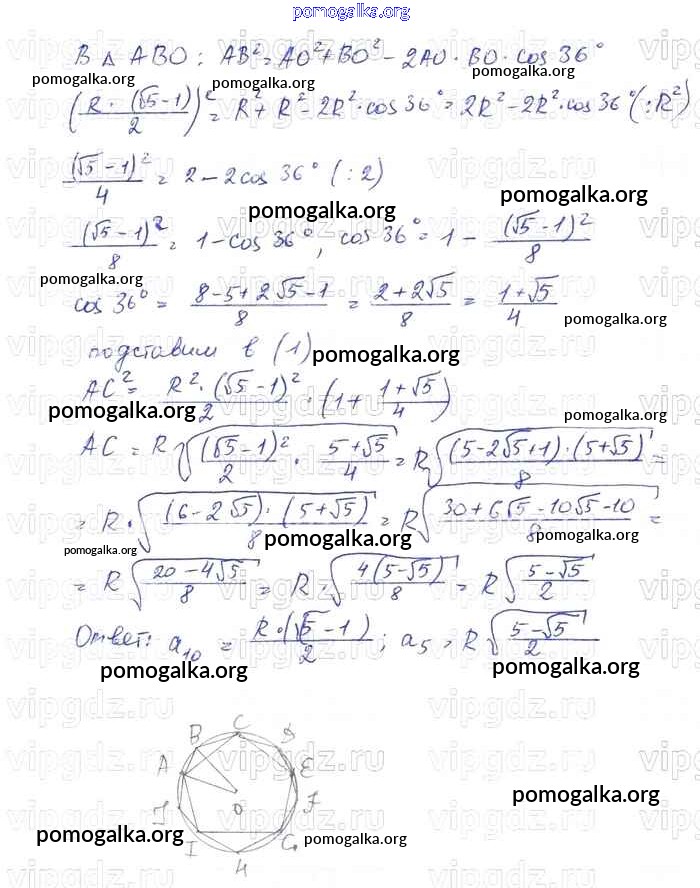 pomogalka.org
В △ ABO: AB² = AO² + BO² - 2AO · BO · cos 36°
pomogalka.org pomogalka.org
(R · (√5 - 1) / 2)² = R² + R² - 2R² · cos 36° = 2R² - 2R² · cos 36° (: R²)
(√5 - 1)² / 4 = 2 - 2cos 36° (: 2)
pomogalka.org pomogalka.org
(√5 - 1)² / 8 = 1 - cos 36°, cos 36° = 1 - (√5 - 1)² / 8
pomogalka.org
cos 36° = (8 - 5 + 2√5 - 1) / 8 = (2 + 2√5) / 8 = (1 + √5) / 4
pomogalka.org
подставим в (1) pomogalka.org
AC² = R² · (√5 - 1)² / 2 · (1 + (1 + √5) / 4)
pomogalka.org pomogalka.org
AC = R √((√5 - 1)² / 2 · (5 + √5) / 4) = R √((5 - 2√5 + 1) · (5 + √5) / 8) =
= R · √((6 - 2√5) · (5 + √5) / 8) = R √((30 + 6√5 - 10√5 - 10) / 8) =
pomogalka.org pomogalka.org pomogalka.org
= R √((20 - 4√5) / 8) = R · √(4(5 - √5) / 8) = R √((5 - √5) / 2)
Ответ: a₁₀ = R · (√5 - 1) / 2; a₅ = R √((5 - √5) / 2)
pomogalka.org pomogalka.org
vipgdz.ru
C
B D
A E
O F
J
I G
H
pomogalka.org
pomogalka.org pomogalka.org